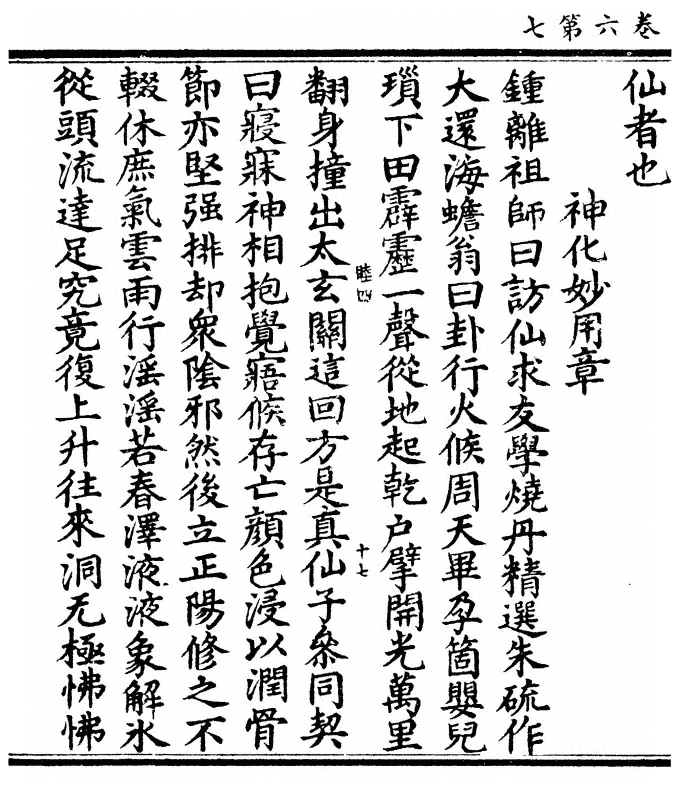 卷六第七
仙者也
神化妙用章
鍾離祖師曰訪仙求友學燒丹精選朱硫作
大還海蟾翁曰卦行火候周天畢孕箇嬰兒
瑣下田霹靂一聲從地起乾户擘開光萬里
睦四
十七
翻身撞出太玄關這回方是真仙子叅同契
曰寢寐神相抱覺寤候存亡顔色浸以潤骨
節亦堅强排却衆陰邪然後立正陽修之不
輟休庶氣雲雨行滛滛若春澤液液象解氷
從頭流達足究竟復上升往來洞无極怫怫